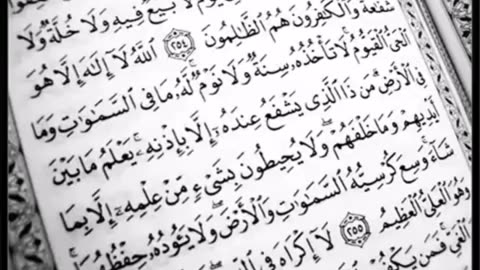 يَوْمٌ لَّا بَيْعٌ فِيهِ وَلَا خُلَّةٌ وَلَا
شَفَٰعَةٌ وَٱلْكَٰفِرُونَ هُمُ ٱلظَّٰلِمُونَ ٢٥٤ ٱللَّهُ لَآ إِلَٰهَ إِلَّا هُوَ
ٱلْحَىُّ ٱلْقَيُّومُ ۚ لَا تَأْخُذُهُۥ سِنَةٌ وَلَا نَوْمٌ ۚ لَّهُۥ مَا فِى ٱلسَّمَٰوَٰتِ وَمَا
فِى ٱلْأَرْضِ ۗ مَن ذَا ٱلَّذِى يَشْفَعُ عِندَهُۥٓ إِلَّا بِإِذْنِهِۦ ۚ يَعْلَمُ مَا بَيْنَ
أَيْدِيهِمْ وَمَا خَلْفَهُمْ ۖ وَلَا يُحِيطُونَ بِشَىْءٍ مِّنْ عِلْمِهِۦٓ إِلَّا بِمَا
شَآءَ ۚ وَسِعَ كُرْسِيُّهُ ٱلسَّمَٰوَٰتِ وَٱلْأَرْضَ ۖ وَلَا يَـُٔودُهُۥ حِفْظُهُمَا ۚ
وَهُوَ ٱلْعَلِىُّ ٱلْعَظِيمُ ٢٥٥ لَآ إِكْرَاهَ فِى
ٱلْغَىِّ ۚ فَمَن يَكْفُرْ